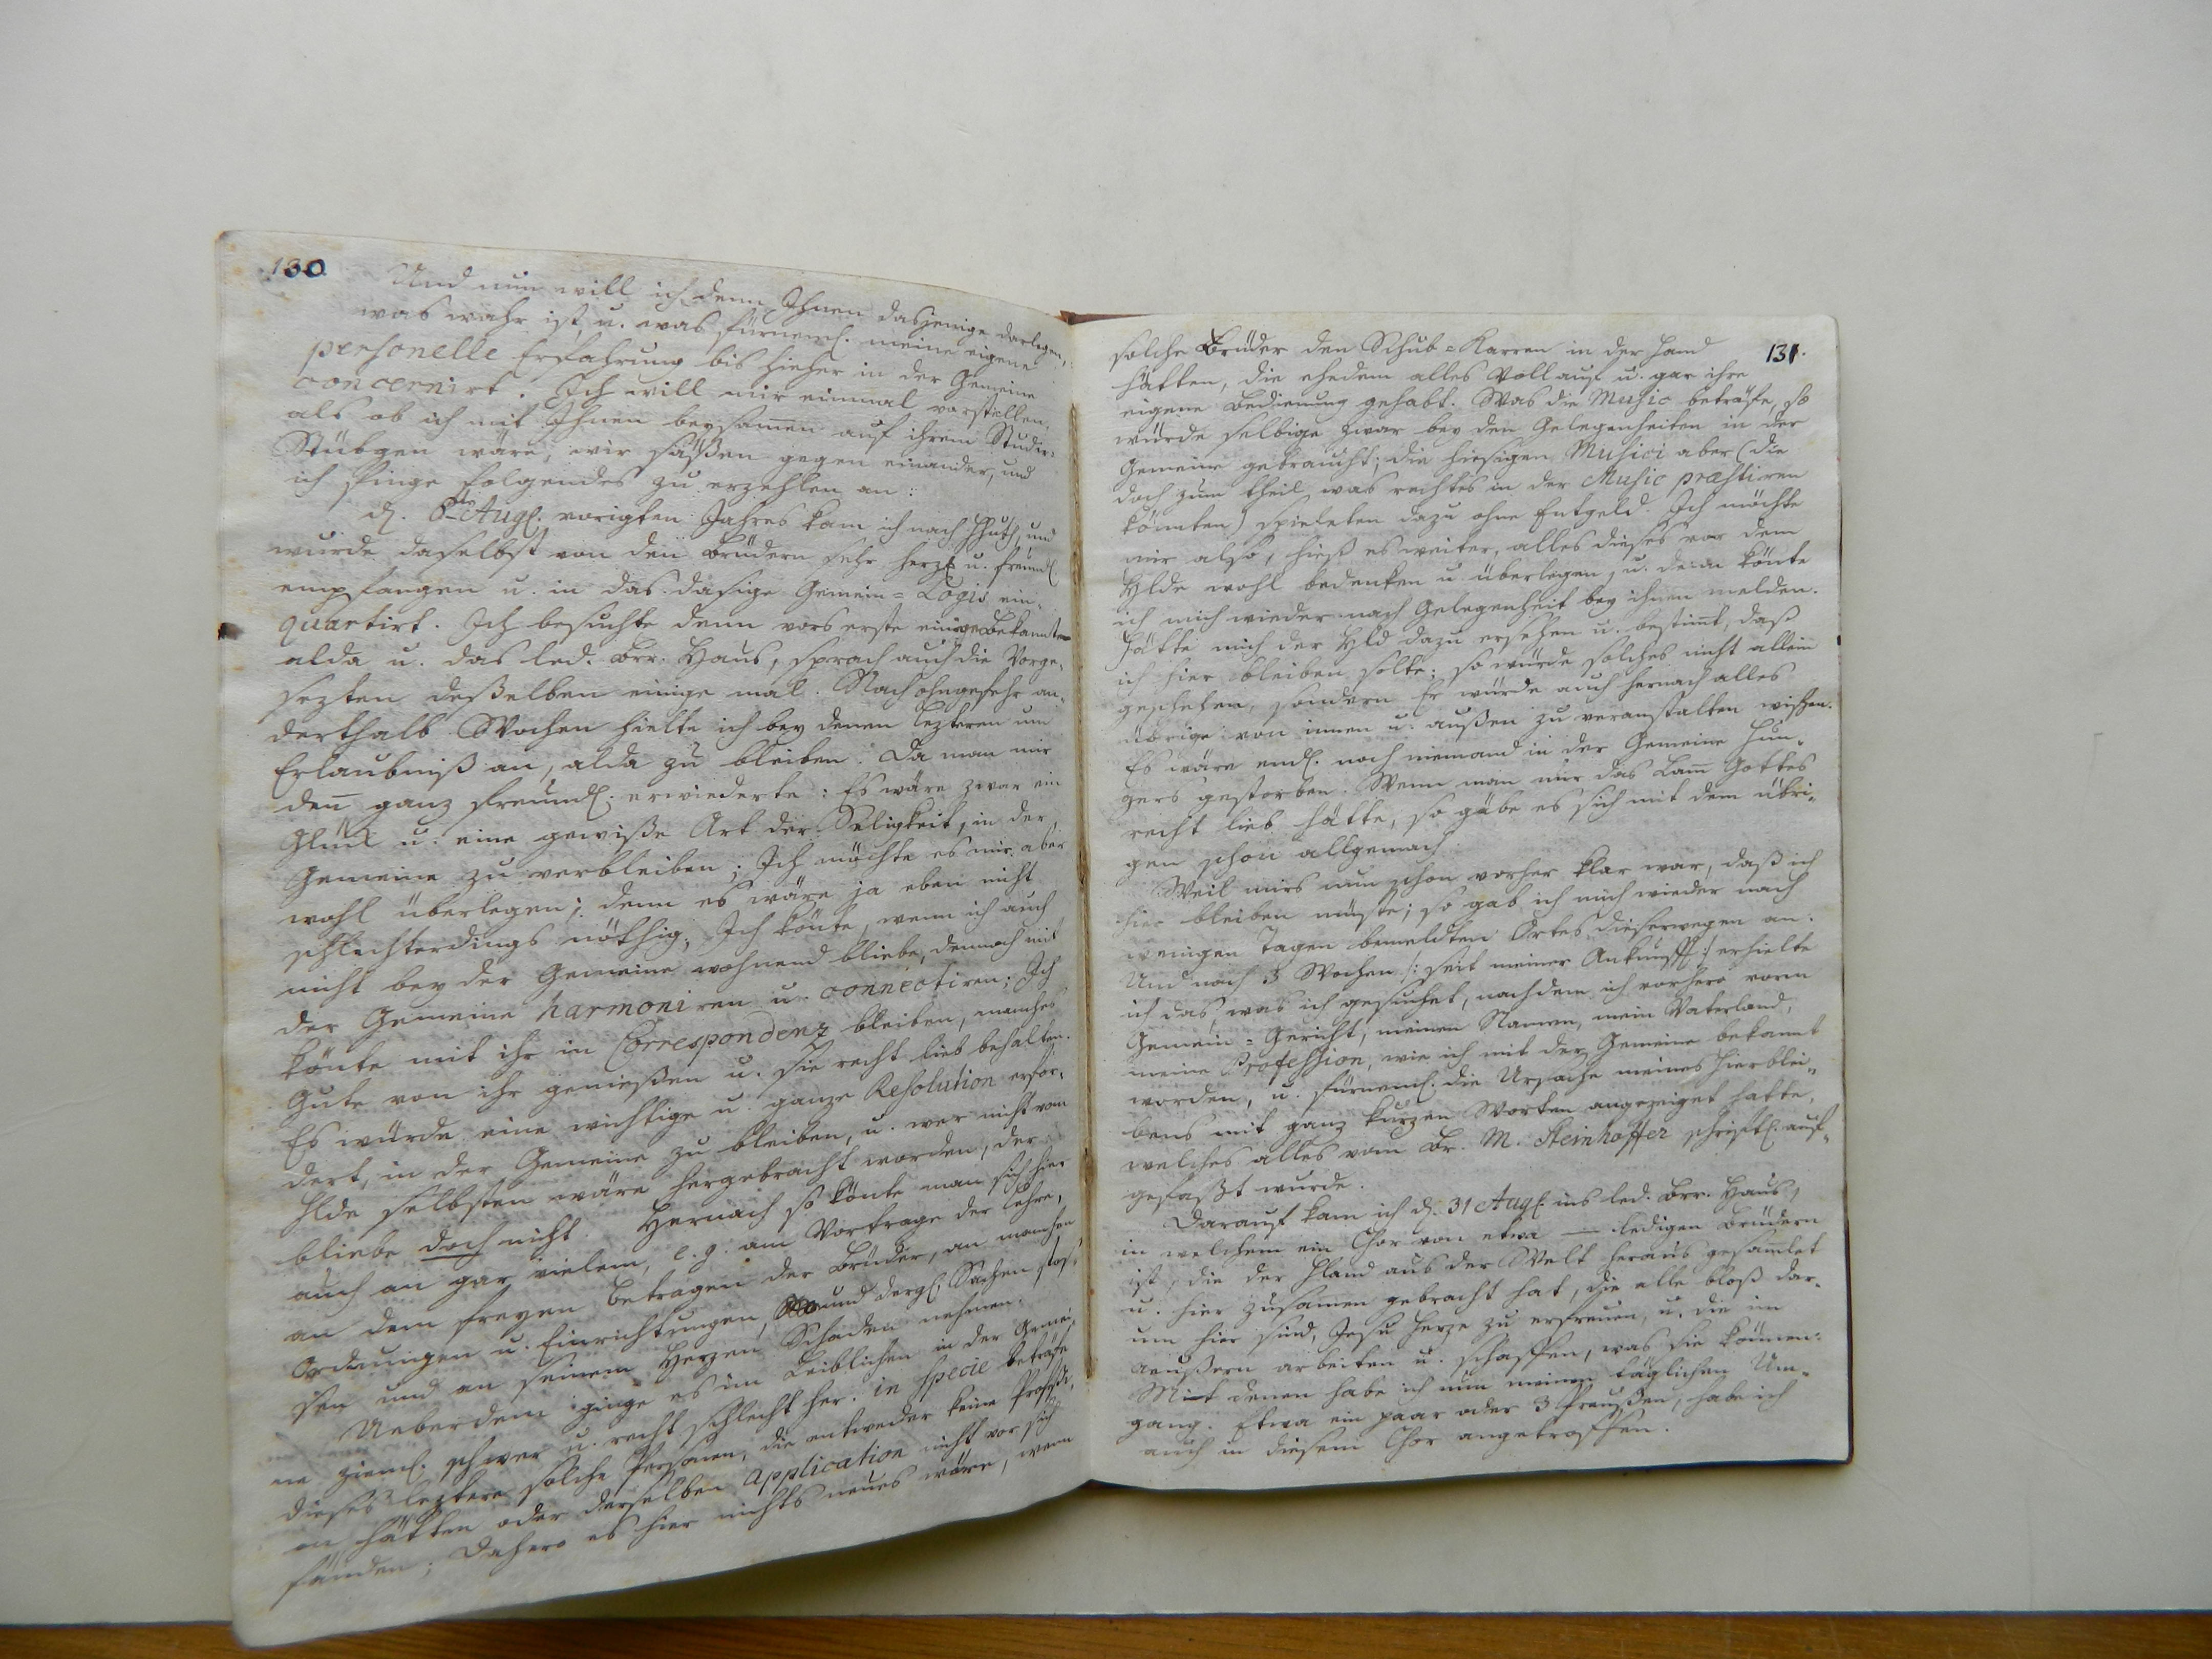 130.
Und nun will ich denn Ihnen dasjenige darlegen,
was wahr ist, u. was fürneml. meine eigene
personelle Erfahrung bis hieher in der Gemeine
concernirt. Ich will mir einmal vorstellen,
als ob ich mit Ihnen beysam̄en auf ihrem Studir-
Stübgen wäre, wir säßen gegen einander, und
ich finge folgendes zu erzehlen an:
d. 8ten Aug. vorigten Jahres kam ich nach HHuth, und
wurde daselbst von den Brüdern sehr herzl. u. freundl.
empfangen u. in das dasige Gemein=Logis ein-
quartirt. Ich besuchte denn vors erste einige Bekannte
alda u. das led. Brr. Haus, sprach auch die Vorge-
sezten deßelben einige mal. Nach ohngefehr an-
derthalb Wochen hielte ich bey denen lezteren um
Erlaubniß an, alda zu bleiben. Da man mir
den̄ ganz freundl. erwiederte: Es wäre zwar ein
Glück u. eine gewiße Art der Seligkeit, in der
Gemeine zu verbleiben; Ich möchte es mir aber
wohl überlegen; denn es wäre ja eben nicht
schlechterdings nöthig; Ich könte, wenn ich auch
nicht bey der Gemeine wohnend bliebe, dennoch mit
der Gemeine harmoniren u. connectiren; Ich
könte mit ihr in Correspondenz bleiben, manches
Gute von ihr genießen u. sie recht lieb behalten.
Es würde eine wichtige u. ganze Resolution erfor-
dert, in der Gemeine zu bleiben, u. wer nicht vom
Hlde selbsten wäre hergebracht worden, der
bliebe doch nicht. Hernach so könte man sich hier
auch an gar vielem, e. g. am Vortrage der Lehre,
an dem freyen Betragen der Brüder, an manchen
Ordnungen u. Einrichtungen, und dergl. Sachen stos-
sen und an seinem Herzen Schaden nehmen.
Ueberdem ginge es im Leiblichen in der Gemei-
ne zieml. schwer u. recht schlecht her. in specie beträfe
dieses leztere solche Personen, die entweder keine Professi-
on hätten oder derselben application nicht vor sich
fänden; Dahero es hier nichts neues wäre, wenn
131.
solche Brüder den Schub=Karren in der Hand
hätten, die ehedem alles Vollauf u. gar ihre
eigene Bedienung gehabt. Was die Music beträfe, so
würde selbige zwar bey den Gelegenheiten in der
Gemeine gebraucht; die hiesigen Musici aber (die
doch zum theil was rechtes in der Music præstiren
könnten) spieleten dazu ohne Entgeld. Ich möchte
mir also, hieß es weiter, alles dieses vor dem
Hlde wohl bedenken u. überlegen, u. denn könte
ich mich wieder nach Gelegenheit bey ihnen melden.
Hätte mich der Hld dazu ersehen u. bestim̄t, daß
ich hier bleiben solte; so würde solches nicht allein
geschehen, sondern Er würde auch hernach alles
übrige von innen u. außen zu veranstalten wißen.
Es wäre endl. noch niemand in der Gemeine Hun-
gers gestorben. Wenn man nur das Lam̄ Gottes
recht lieb hätte, so gäbe es sich mit dem übri-
gen schon allgemach.
Weil mirs nun schon vorher klar war, daß ich
hier bleiben müste; so gab ich mich wieder nach
wenigen Tagen bemeldten Ortes dieserwegen an.
Und nach 3 Wochen /: seit meiner Ankunfft :/ erhielte
ich das, was ich gesuchet, nachdem ich vorhero vorm
Gemein=Gericht, meinen Namen, mein Vaterland,
meine Profession, wie ich mit der Gemeine bekannt
worden, u. fürneml. die Ursache meines Hierblei-
bens mit ganz kurzen Worten angezeiget hatte,
welches alles vom Br. M. Steinhoffer schriftl. auf-
gefaßt wurde.
Darauf kam ich d. 31 Aug. ins led. Brr. Haus,
in welchem ein Chor von etwa — ledigen Brüdern
ist, die der Hland aus der Welt heraus gesam̄let
u. hier zusam̄en gebracht hat, die alle bloß dar-
um hier sind, Jesu Herze zu erfreuen, u. die im
äußern arbeiten u. schaffen, was sie können.
Mit denen habe ich nun meinen täglichen Um-
gang. Etwa ein paar oder 3 Preußen, habe ich
auch in diesem Chor angetroffen.